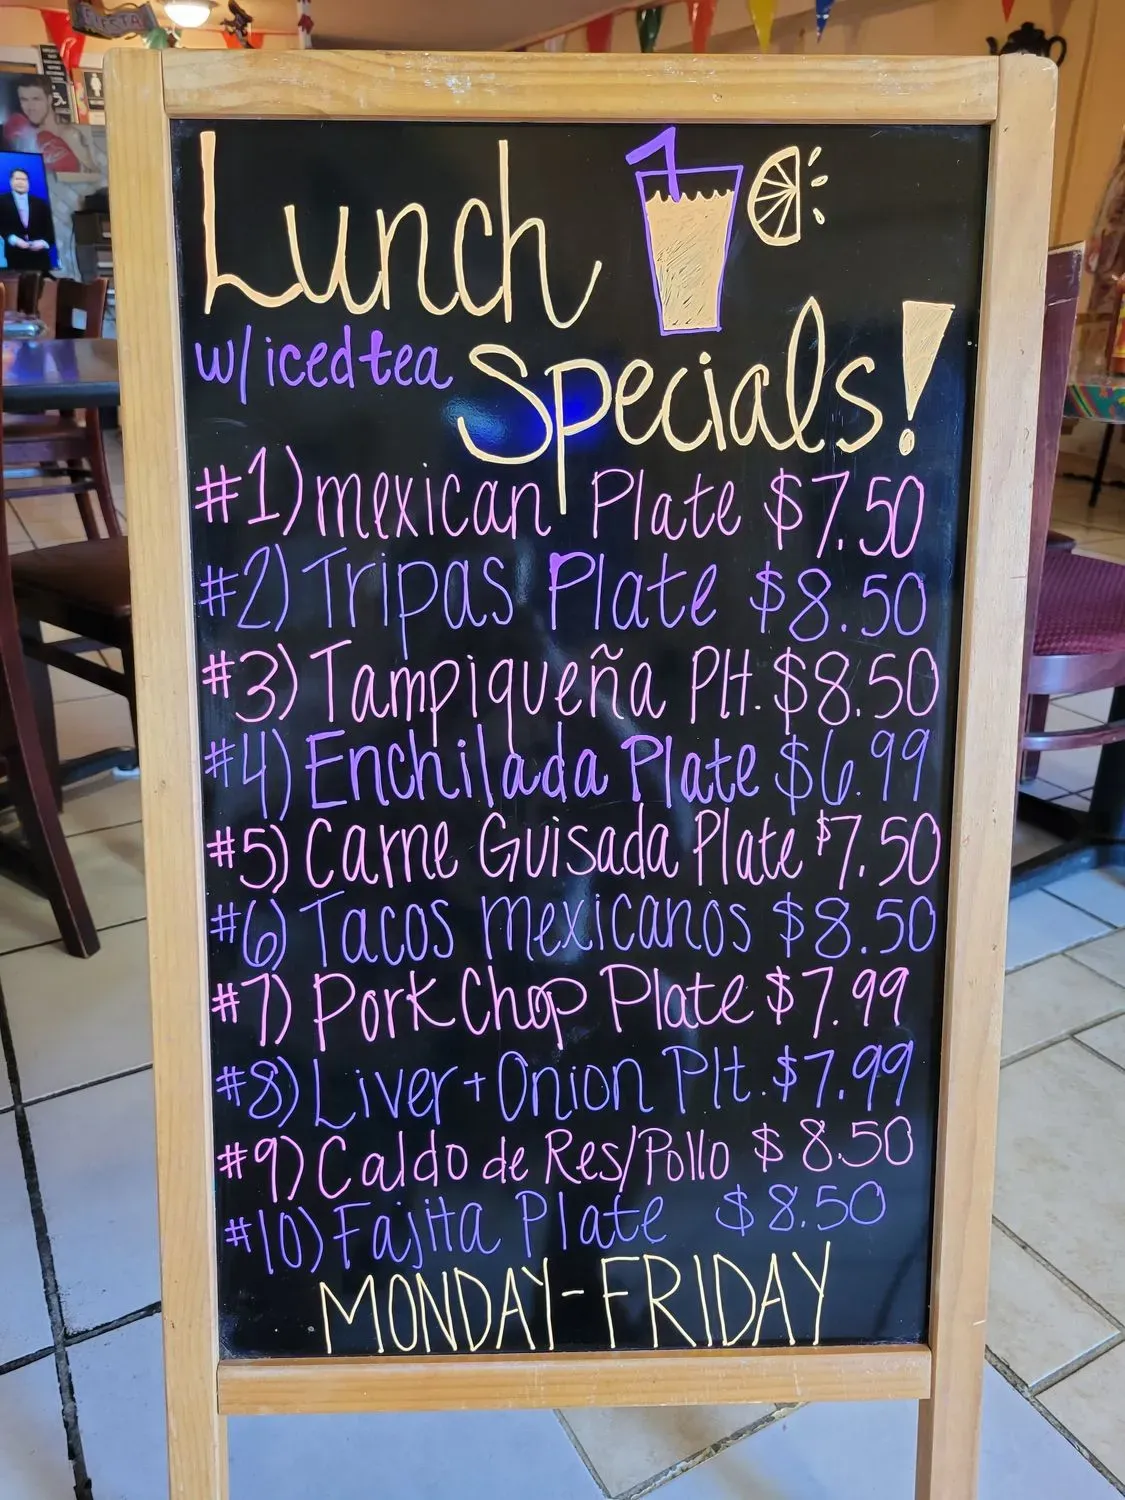 FIESTA
Lunch
w/icedtea
Specials!
#1) mexican Plate $7.50
#2) Tripas Plate $8.50
#3) Tampiqueña Plt. $8.50
#4) Enchilada Plate $6.99
#5) Carne Guisada Plate $7.50
#6) Tacos mexicanos $8.50
#7) Pork Chop Plate $7.99
#8) Liver + Onion Plt. $7.99
#9) Caldo de Res/Pollo $8.50
#10) Fajita Plate $8.50
MONDAY-FRIDAY